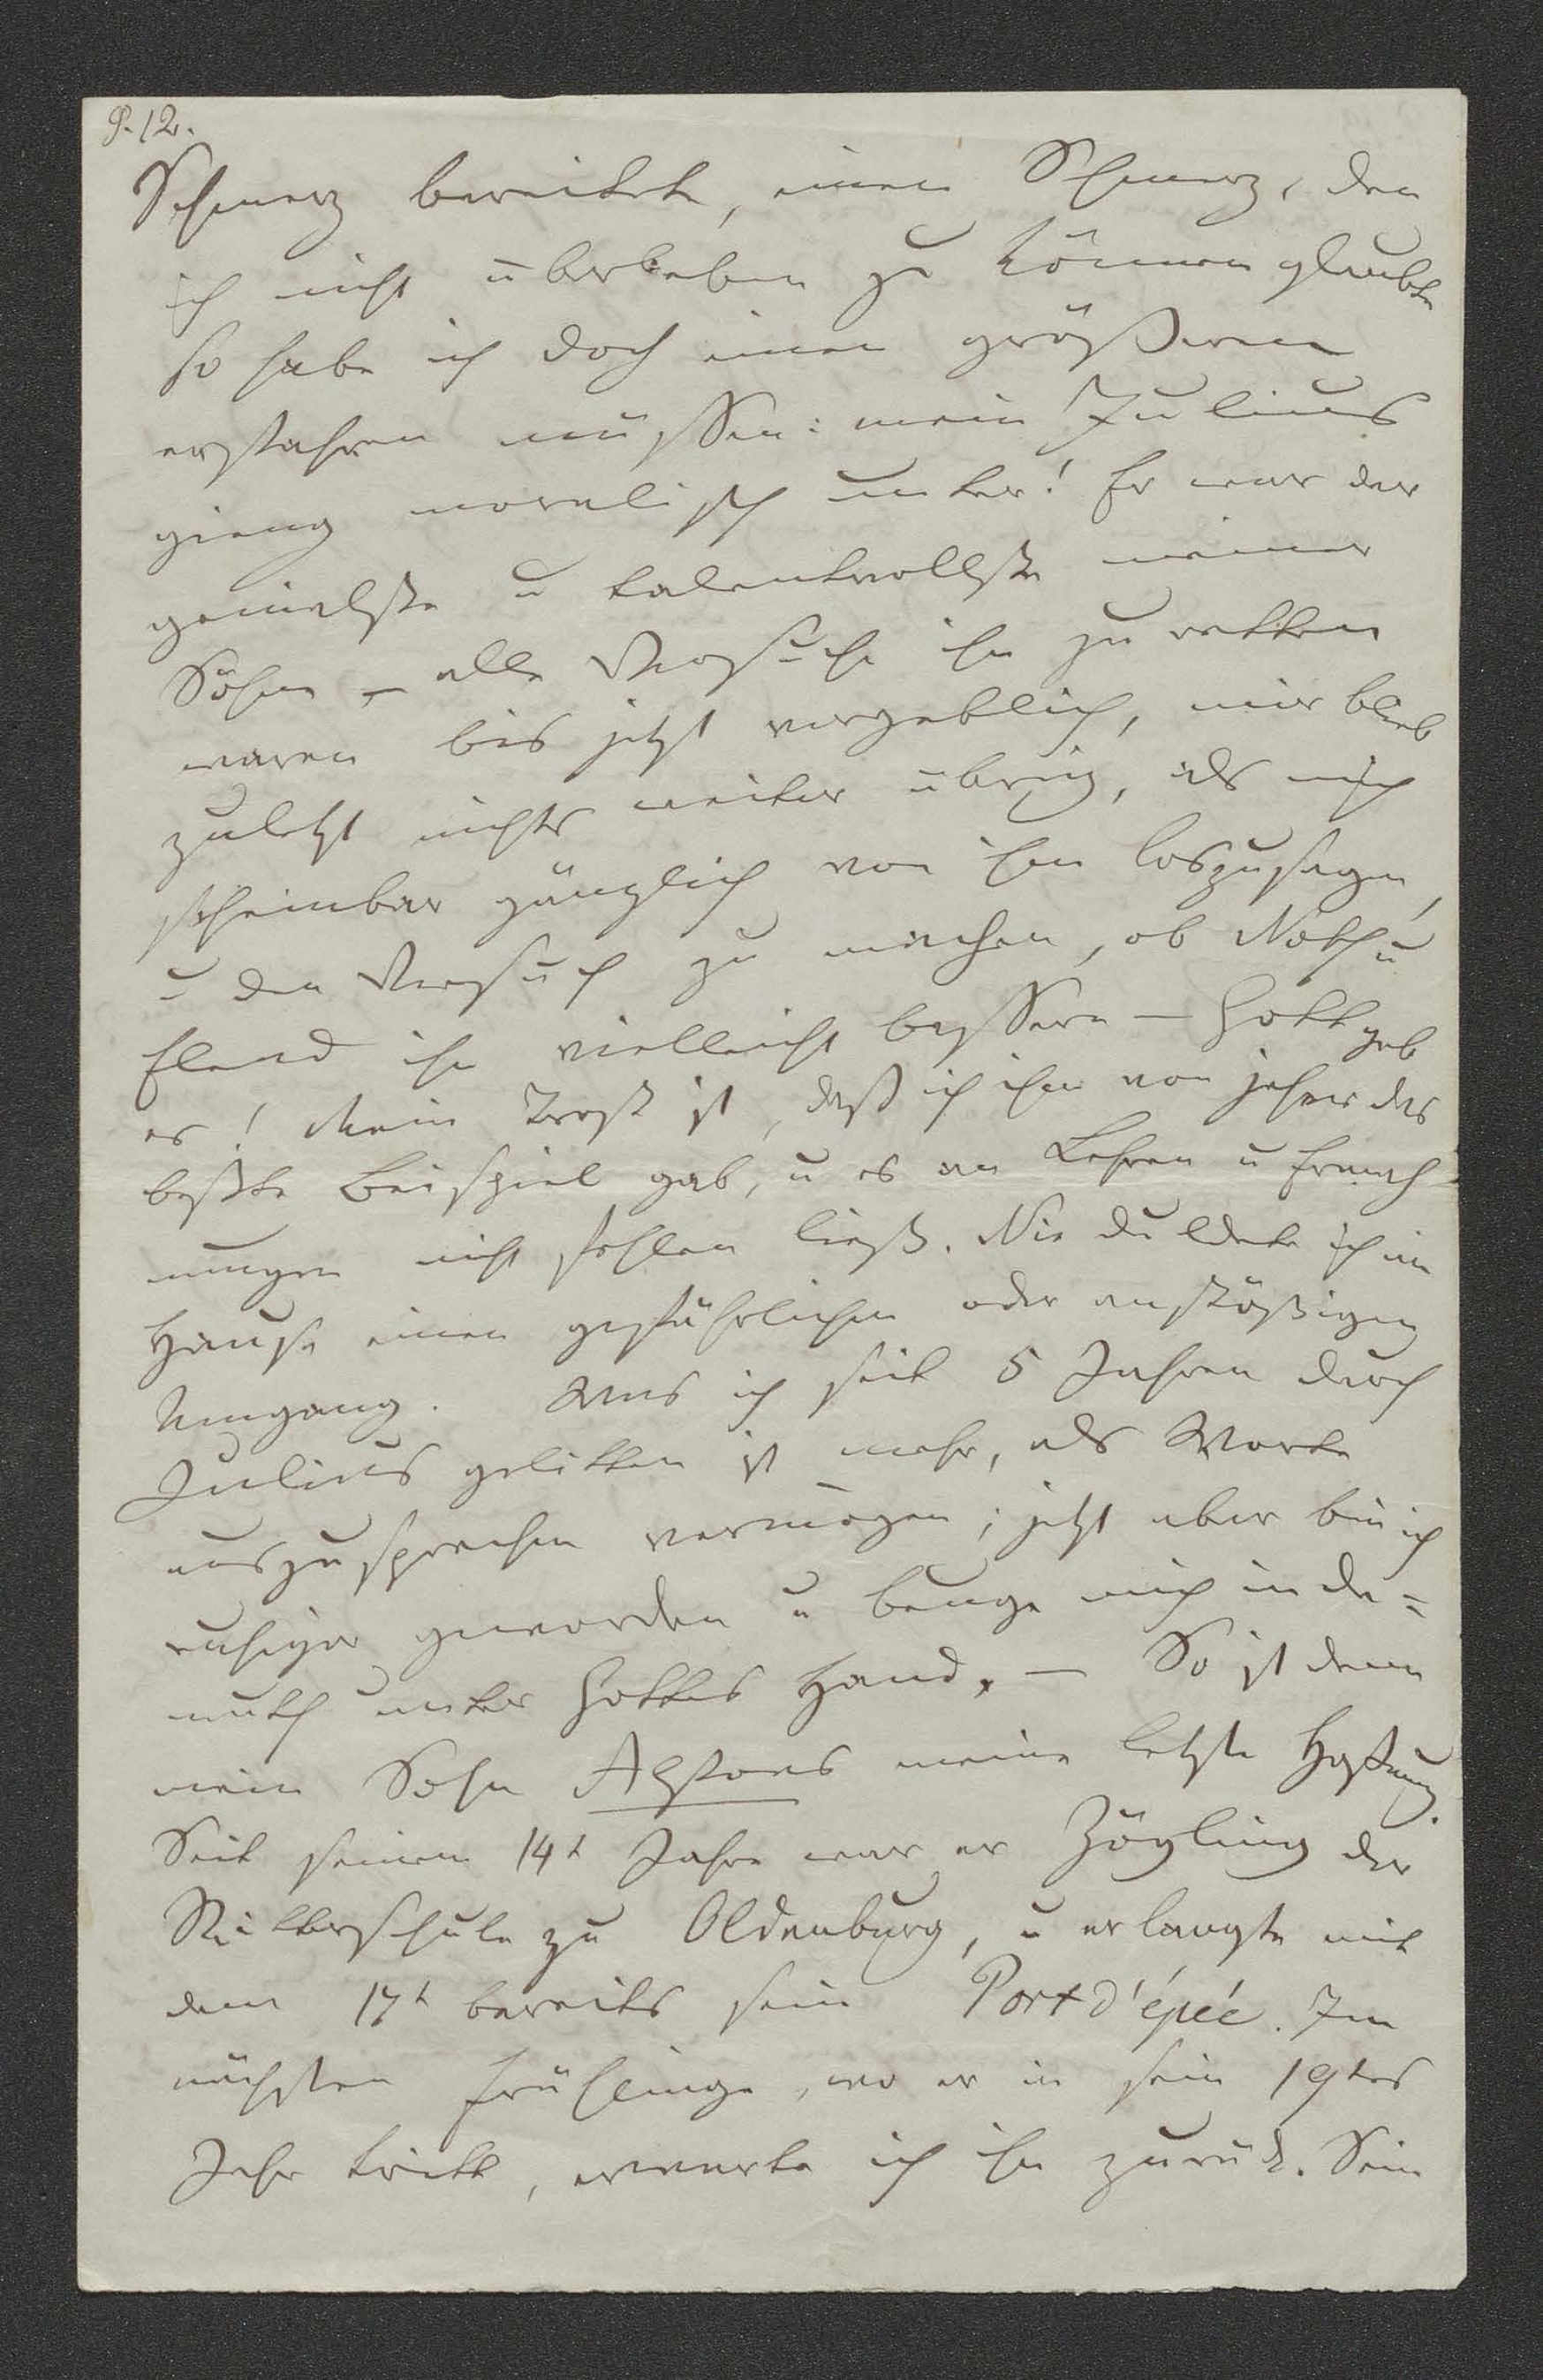 P. 12.
Schmerz bereitete, einen Schmerz, den
ich nicht überleben zu können glaubte
so habe ich doch einen größeren
erfahren müssen: mein Julius
gieng moralisch unter! Er war der
genialste u talentvollste meiner
Söhne – alle Versuche ihn zu retten
waren bis jetzt vergeblich, mir blieb
zuletzt nichts weiter übrig, als mich
scheinbar gänzlich von ihm loszusagen,
u den Versuch zu machen, ob Noth u
Elend ihn vielleicht bessern – Gott geb
es! Mein Trost ist, daß ich ihm von jeher das
beßte Beispiel gab, u es an Lehren u Ermah-
nungen nicht fehlen ließ. Nie duldete ich im
Hause einen gefährlichen oder anstößigen
Umgang. Was ich seit 5 Jahren durch
Julius gelitten ist mehr, als Worte
auszusprechen vermögen; jetzt aber bin ich
ruhiger geworden u beuge mich in De=
muth unter Gottes Hand. – So ist denn
mein Sohn meine letzte Hoffnung.
Seit seinem 14t Jahre war er Zögling der
Militerschule zu Oldenburg, u erlangte mit
dem 17t bereits sein Port d'épée. Im
nächsten Frühlinge, wo er in sein 19tes
Jahr tritt, erwarte ich ihn zurück. Sein